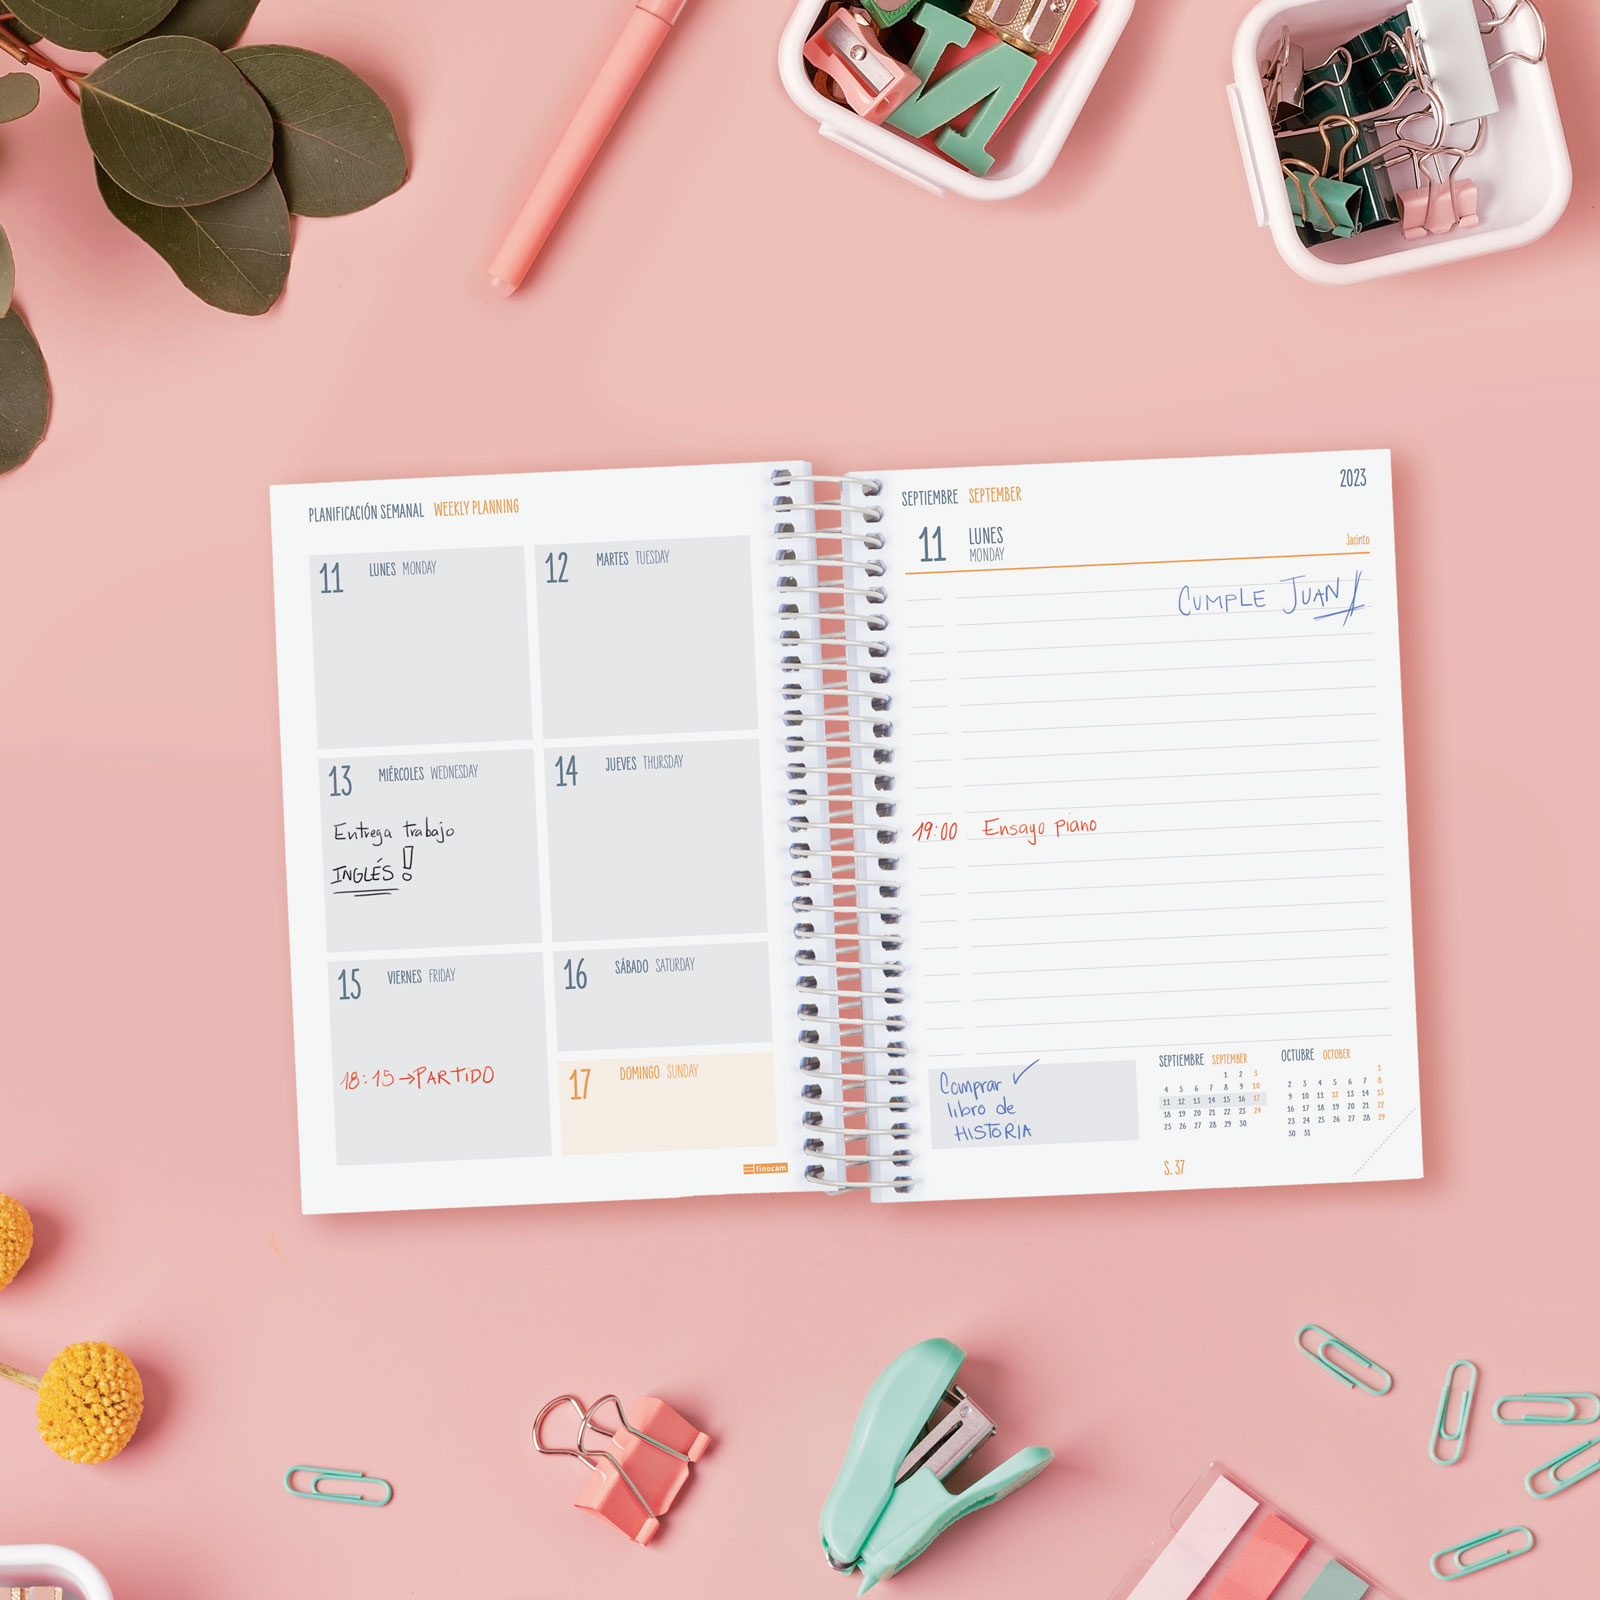 PLANIFICACIÓN SEMANAL WEEKLY PLANNING
11 LUNES MONDAY
12 MARTES TUESDAY
13 MIÉRCOLES WEDNESDAY
Entrega trabajo
INGLÉS!
14 JUEVES THURSDAY
15 VIERNES FRIDAY
18:15→PARTIDO
16 SÁBADO SATURDAY
17 DOMINGO SUNDAY
finocam
2023
SEPTIEMBRE SEPTEMBER
11 LUNES
MONDAY
Jacinto
CUMPLE JUAN
19:00 Ensayo piano
Comprar ✓
libro de
HISTORIA
SEPTIEMBRE SEPTEMBER
1 2 3
4 5 6 7 8 9 10
11 12 13 14 15 16 17
18 19 20 21 22 23 24
25 26 27 28 29 30
S. 37
OCTUBRE OCTOBER
1
2 3 4 5 6 7 8
9 10 11 12 13 14 15
16 17 18 19 20 21 22
23 24 25 26 27 28 29
30 31